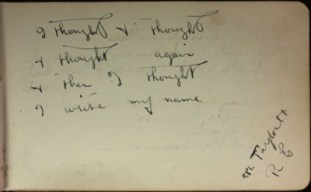 I thought & thought
& thought again
& then I thought
I write my name
Taylor
R C